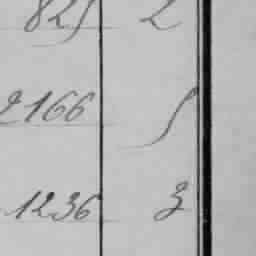 825 2
2166 5
1236 3